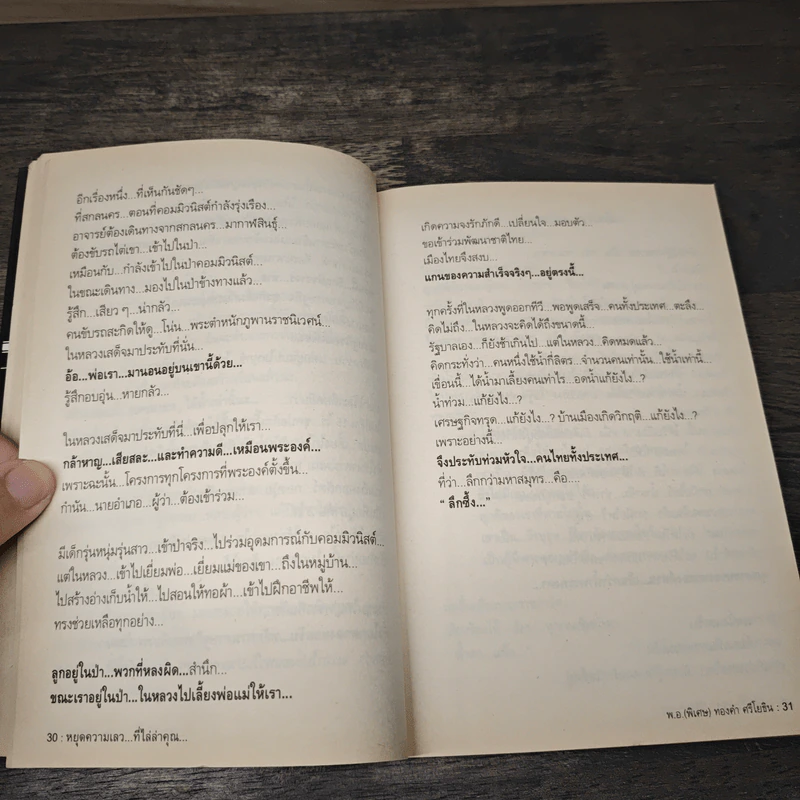 อีกเรื่องหนึ่ง...ที่เห็นกันชัดๆ...
ที่สกลนคร...ตอนที่คอมมิวนิสต์กำลังรุ่งเรือง...
อาจารย์ต้องเดินทางจากสกลนคร...มากาฬสินธุ์...
ต้องขับรถไต่เขา...เข้าไปในป่า...
เหมือนกับ...กำลังเข้าไปในป่าคอมมิวนิสต์...
ในขณะเดินทาง...มองไปในป่าข้างทางแล้ว...
รู้สึก...เสียว ๆ...น่ากลัว...
คนขับรถสะกิดให้ดู...โน่น...พระตำหนักภูพานราชนิเวศน์...
ในหลวงเสด็จมาประทับที่นั่น...
อ้อ...พ่อเรา...มานอนอยู่บนเขานี้ด้วย...
รู้สึกอบอุ่น...หายกลัว...
ในหลวงเสด็จมาประทับที่นี่...เพื่อปลุกให้เรา...
กล้าหาญ...เสียสละ...และทำความดี...เหมือนพระองค์...
เพราะฉะนั้น...โครงการทุกโครงการที่พระองค์ตั้งขึ้น...
กำนัน...นายอำเภอ...ผู้ว่า...ต้องเข้าร่วม...
มีเด็กรุ่นหนุ่มรุ่นสาว...เข้าป่าจริง...ไปร่วมอุดมการณ์กับคอมมิวนิสต์...
แต่ในหลวง...เข้าไปเยี่ยมพ่อ...เยี่ยมแม่ของเขา...ถึงในหมู่บ้าน...
ไปสร้างอ่างเก็บน้ำให้...ไปสอนให้ทอผ้า...เข้าไปฝึกอาชีพให้...
ทรงช่วยเหลือทุกอย่าง...
ลูกอยู่ในป่า...พวกที่หลงผิด...สำนึก...
ขณะเราอยู่ในป่า...ในหลวงไปเลี้ยงพ่อแม่ให้เรา...
30 : หยุดความเลว...ที่ไล่ล่าคุณ...
เกิดความจงรักภักดี...เปลี่ยนใจ...มอบตัว...
ขอเข้าร่วมพัฒนาชาติไทย...
เมืองไทยจึงสงบ...
แกนของความสำเร็จจริงๆ...อยู่ตรงนี้...
ทุกครั้งที่ในหลวงพูดออกทีวี...พอพูดเสร็จ...คนทั้งประเทศ...ตะลึง...
คิดไม่ถึง...ในหลวงจะคิดได้ถึงขนาดนี้...
รัฐบาลเอง...ก็ยังช้าเกินไป...แต่ในหลวง...คิดหมดแล้ว...
คิดกระทั่งว่า...คนหนึ่งใช้น้ำกี่ลิตร...จำนวนคนเท่านั้น...ใช้น้ำเท่านี้...
เขื่อนนี้...ได้น้ำมาเลี้ยงคนเท่าไร...อดน้ำแก้ยังไง...?
น้ำท่วม...แก้ยังไง...?
เศรษฐกิจทรุด...แก้ยังไง...? บ้านเมืองเกิดวิกฤติ...แก้ยังไง...?
เพราะอย่างนี้...
จึงประทับท่วมหัวใจ...คนไทยทั้งประเทศ...
ที่ว่า...ลึกกว่ามหาสมุทร...คือ....
“ ลึกซึ้ง...”
พ.อ.(พิเศษ) ทองคำ ศรีโยธิน : 31